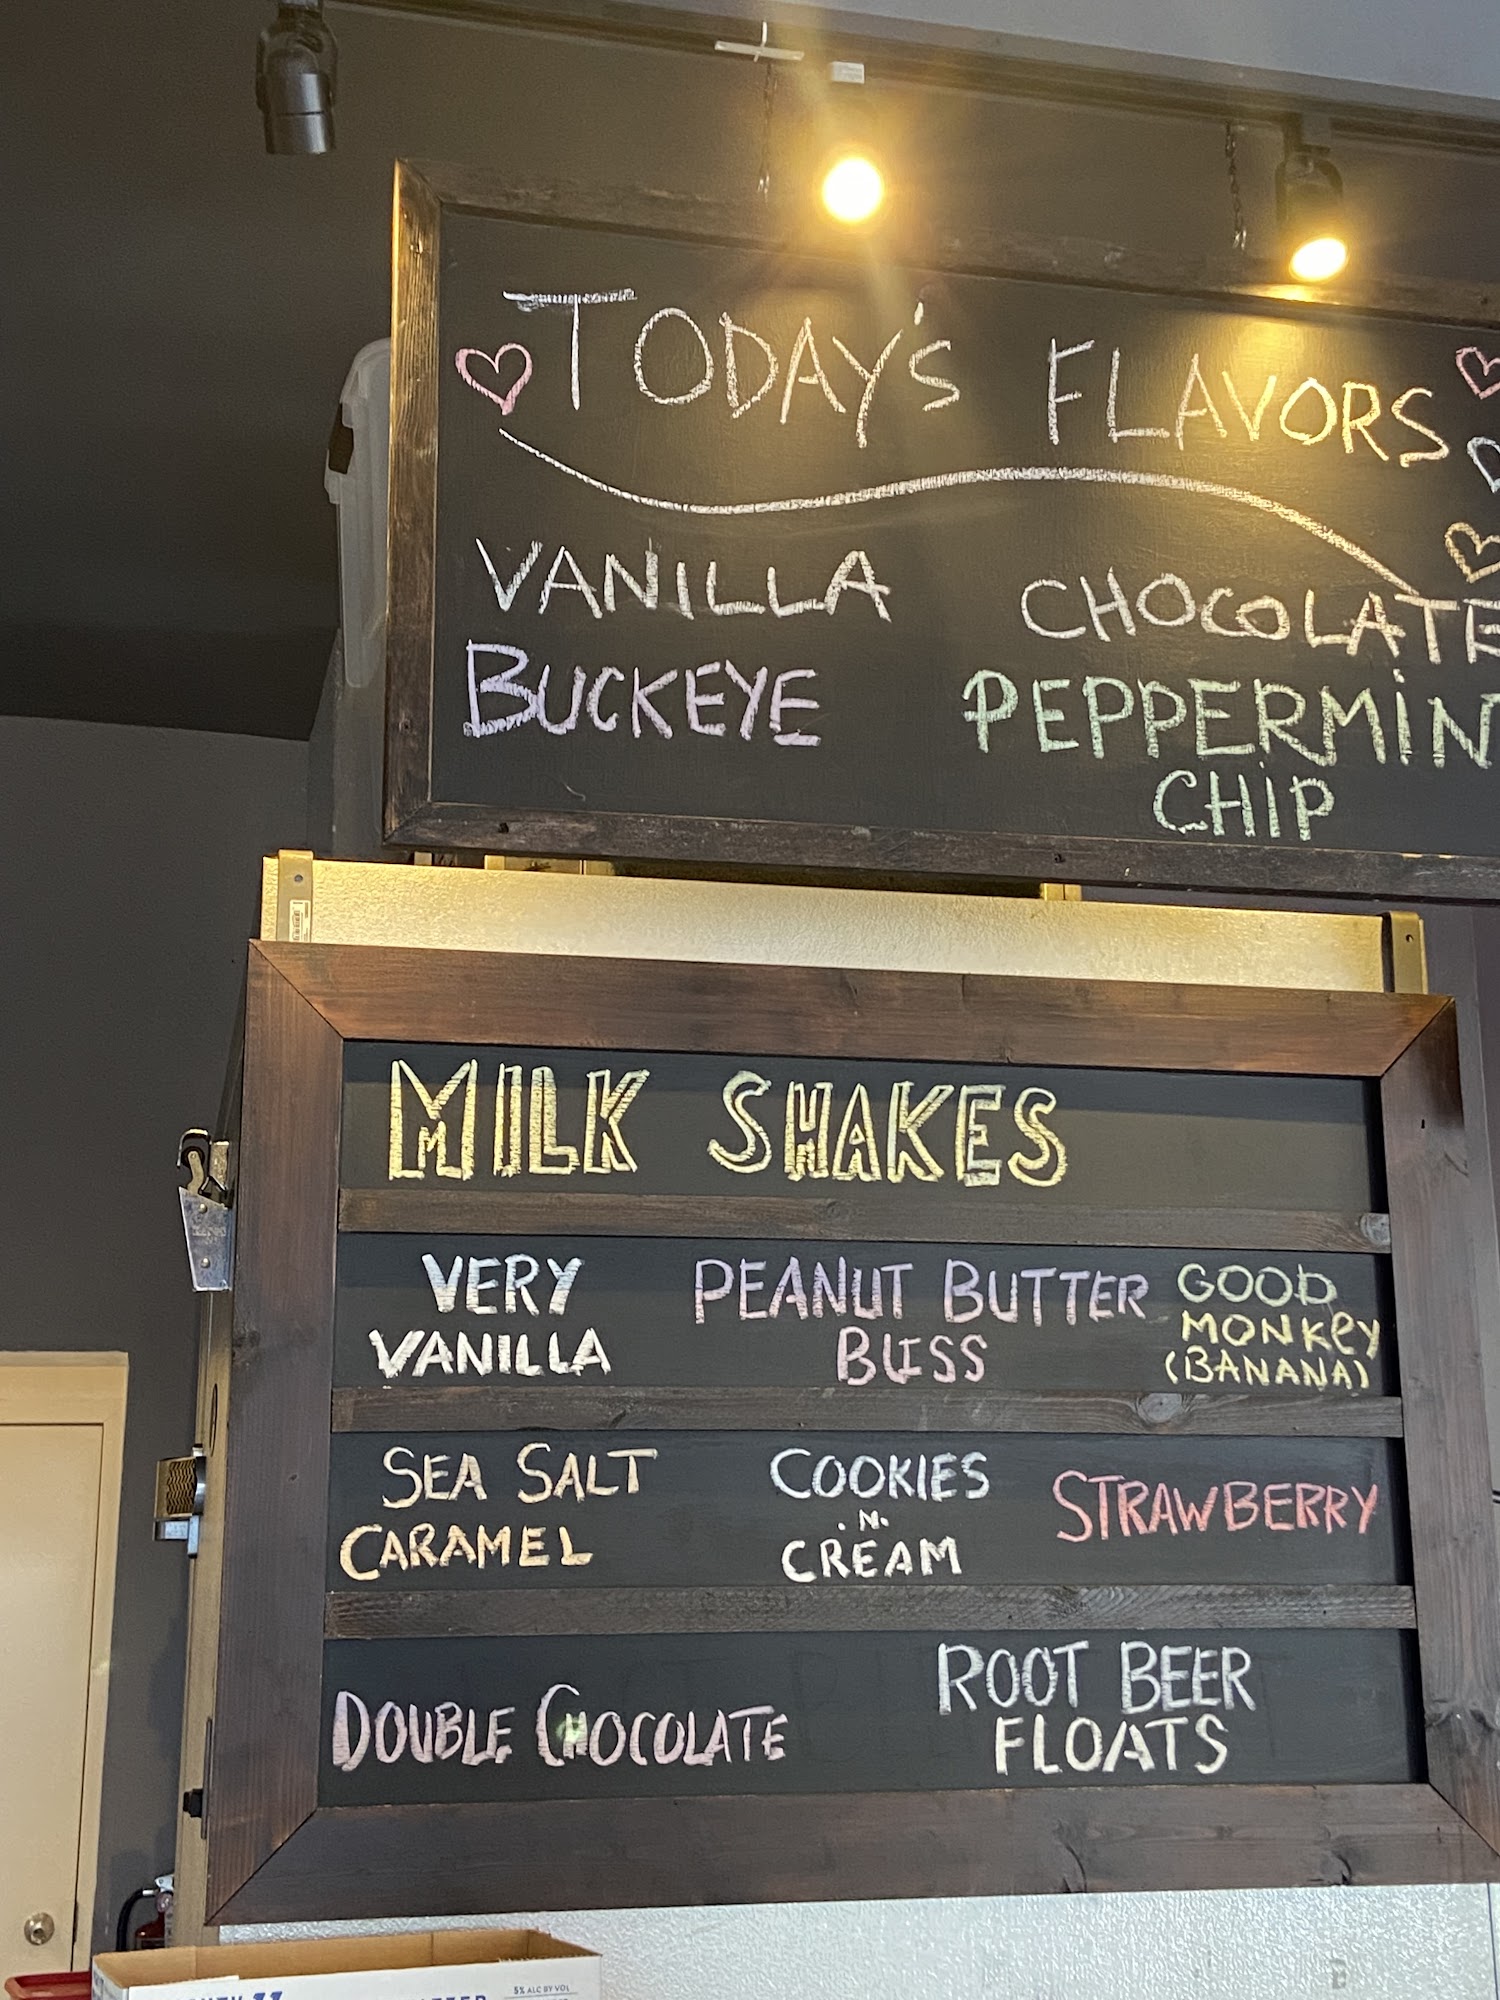 TODAY'S FLAVORS
VANILLA CHOCOLATE
BUCKEYE PEPPERMIN
CHIP
MILK SHAKES
VERY
VANILLA
PEANUT BUTTER
BLISS
GOOD
MONKEY
(BANANA)
SEA SALT
CARAMEL
COOKIES
.N.
CREAM
STRAWBERRY
DOUBLE CHOCOLATE
ROOT BEER
FLOATS
5% ALC BY VOL